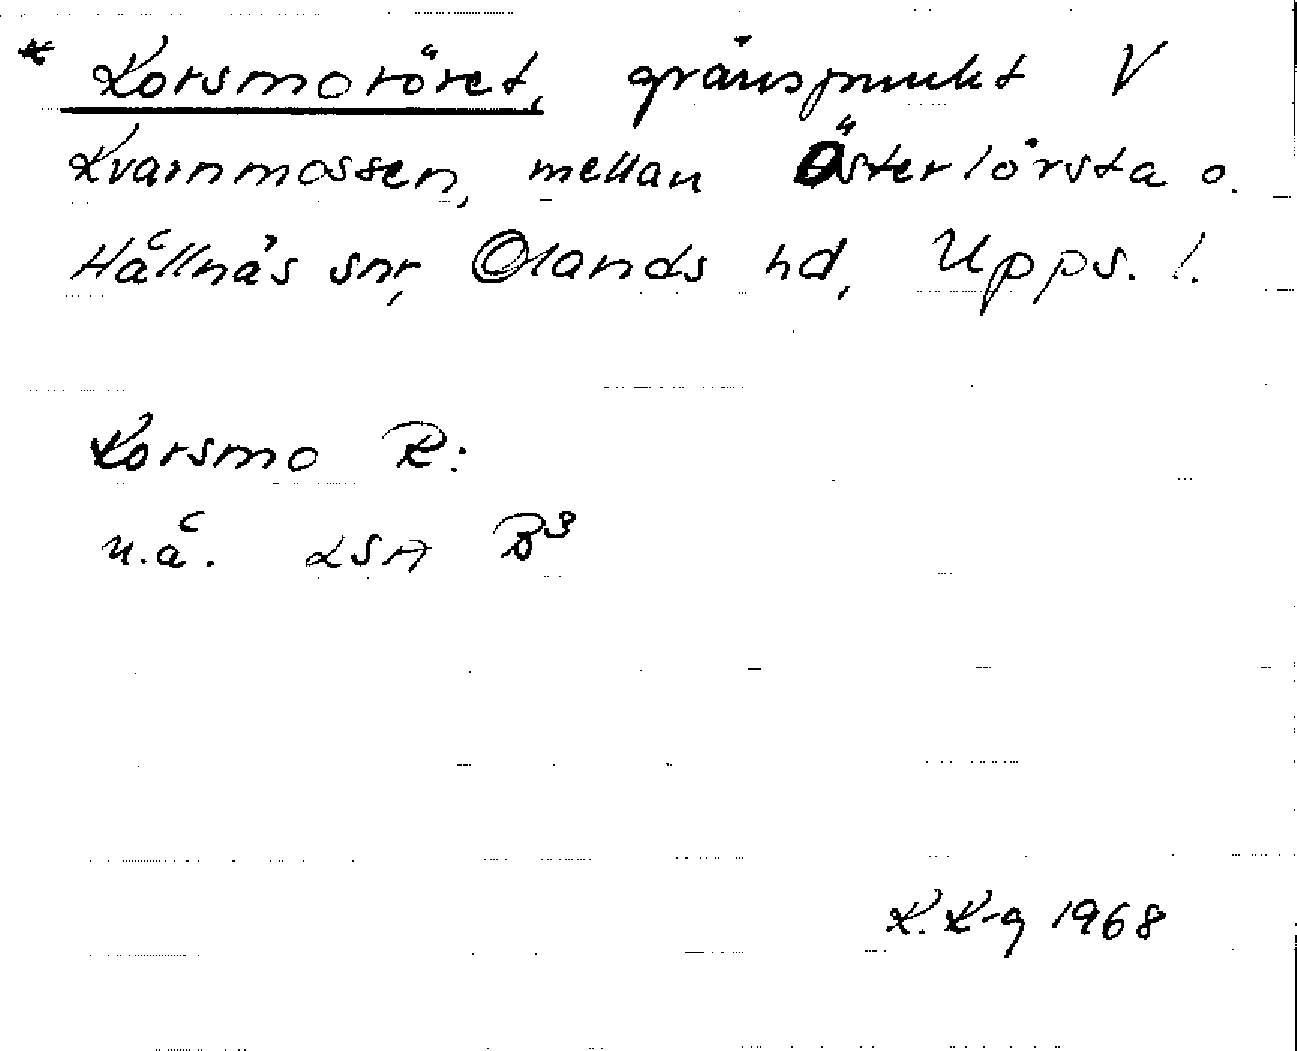 * Korsmoröret, gränspunkt V
Kvarnmossen, mellan Österlövsta o.
Hållnäs snr, Olands hd, Upps. l.
Korsmo R:
u.å. LSA B3
K. K-g 1968